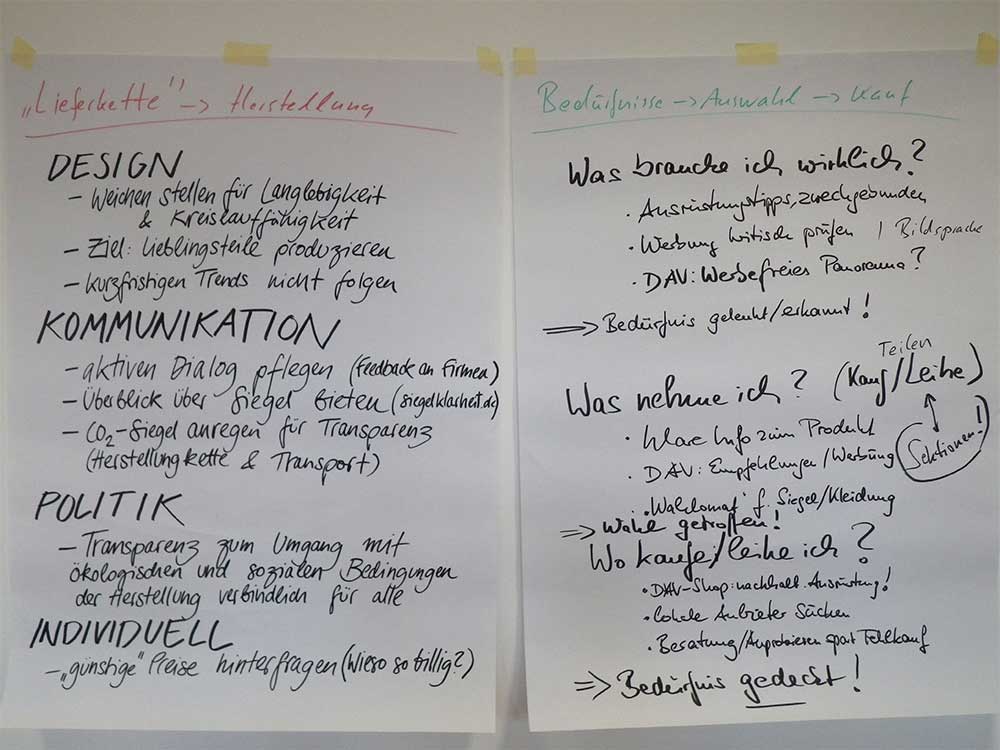 „Lieferkette" → Herstellung
DESIGN
- Weichen stellen für Langlebigkeit
& Kreislauffähigkeit
- Ziel: Lieblingsteile produzieren
- kurzfristigen Trends nicht folgen
KOMMUNIKATION
- aktiven Dialog pflegen (Feedback an Firmen)
- Überblick über Siegel bieten (siegelklarheit.de)
- CO₂-Siegel anregen für Transparenz
(Herstellungkette & Transport)
POLITIK
- Transparenz zum Umgang mit
ökologischen und sozialen Bedingungen
der Herstellung verbindlich für alle
INDIVIDUELL
- „günstige" Preise hinterfragen (Wieso so billig?)
Bedürfnisse → Auswahl → Kauf
Was brauche ich wirklich?
· Ausrüstungstipps, zweckgebunden
· Werbung kritisch prüfen / Bildsprache
· DAV: Werbefreies Panorama?
⇒ Bedürfnis gelenkt/erkannt!
Teilen
Was nehme ich? (Kauf/Leihe)
Sektionen!
· Klare Info zum Produkt
· DAV: Empfehlungen/Werbung
· „Wahlomat" f. Siegel/Kleidung
⇒ Wahl getroffen!
Wo kaufe/leihe ich?
· DAV-Shop: nachhalt. Ausrüstung!
· lokale Anbieter suchen
· Beratung/Anprobieren spart Fehlkauf
⇒ Bedürfnis gedeckt!